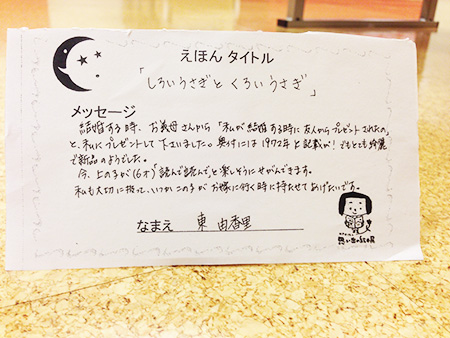 えほん タイトル
「しろいうさぎと くろいうさぎ」
メッセージ
結婚する時、お義母さんから「私が結婚する時に友人からプレゼントされたの」
と、私にプレゼントして下さいました。奥付には1972年と記載が!でもとても綺麗
で新品のようでした。
今、上の子が(6才)「読んで読んで」と楽しそうにせがんできます。
私も大切に扱って、いつかこの子がお嫁に行く時に持たせてあげたいです。
なまえ 東 由香里